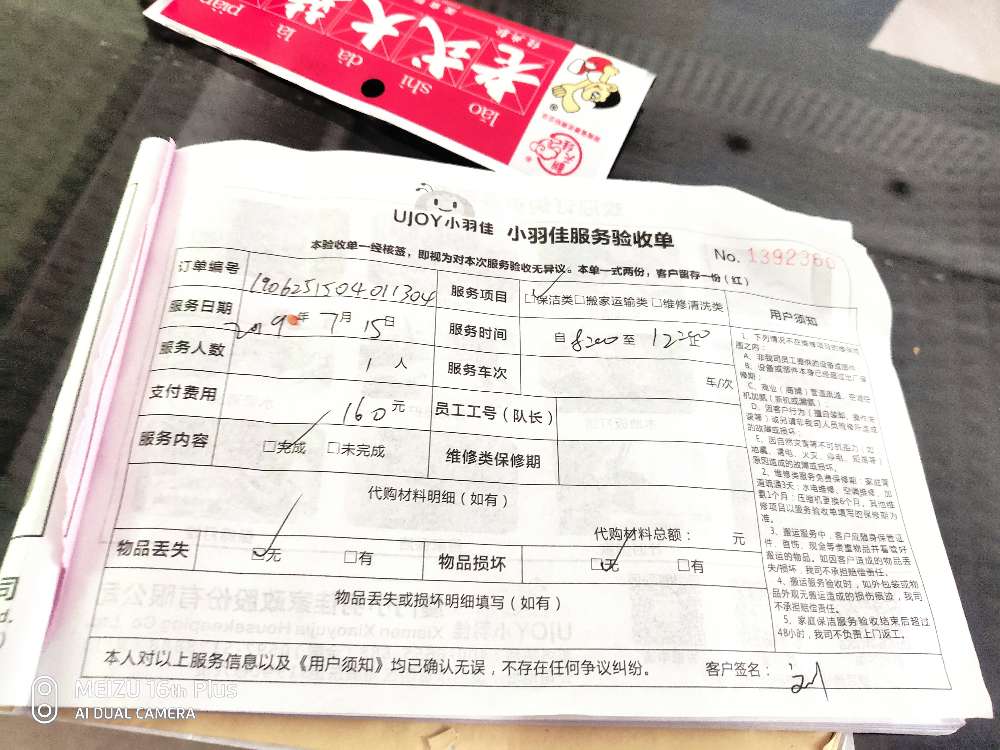 老式大辣
lǎo shì dà là piàn
UJOY小羽佳 小羽佳服务验收单
No. 1392380
本验收单一经核签，即视为对本次服务验收无异议。本单一式两份，客户留存一份（红）
订单编号 190625150401304 服务项目 □保洁类□搬家运输类□维修清洗类
服务日期 2019年7月15日 服务时间 自8:00至12:00
服务人数 1人 服务车次 车/次
支付费用 160元 员工工号（队长）
服务内容 □完成 □未完成 维修类保修期
代购材料明细（如有）
代购材料总额： 元
物品丢失 □无 □有 物品损坏 □无 □有
物品丢失或损坏明细填写（如有）
本人对以上服务信息以及《用户须知》均已确认无误，不存在任何争议纠纷。 客户签名：刘
用户须知
1、下列情况不在维修项目的保修范
围之内：
A、非我司员工提供的设备或部件
B、设备或部件本身已经超过出厂保
修期；
C、商业（商铺）管道疏通、空调任
机加氟（新机或漏氟）
D、因客户行为（擅自装卸、操作失
误等）或另请非我司人员维修所造成
的故障或损坏
E、因自然灾害等不可抗拒力（如
地震、雷电、火灾、停电、短路等）
原因造成的故障或损坏。
2、维修类服务免费保修期：家庭管
道疏通3天；水电维修、空调维修、加
氟1个月；压缩机更换6个月。其他维
修项目以服务验收单填写的保修期为
准。
3、搬运服务中，客户应随身保管证
件、首饰、现金等贵重物品并看管好
搬运的物品。如因客户造成的物品丢
失/损坏，我司不承担赔偿责任。
4、搬运服务验收时，如外包装或物
品外观无搬运造成的损伤痕迹，我司
不承担赔偿责任。
5、家庭保洁服务验收结束后超过
48小时，我司不负责上门返工。
MEIZU 16th Plus
AI DUAL CAMERA